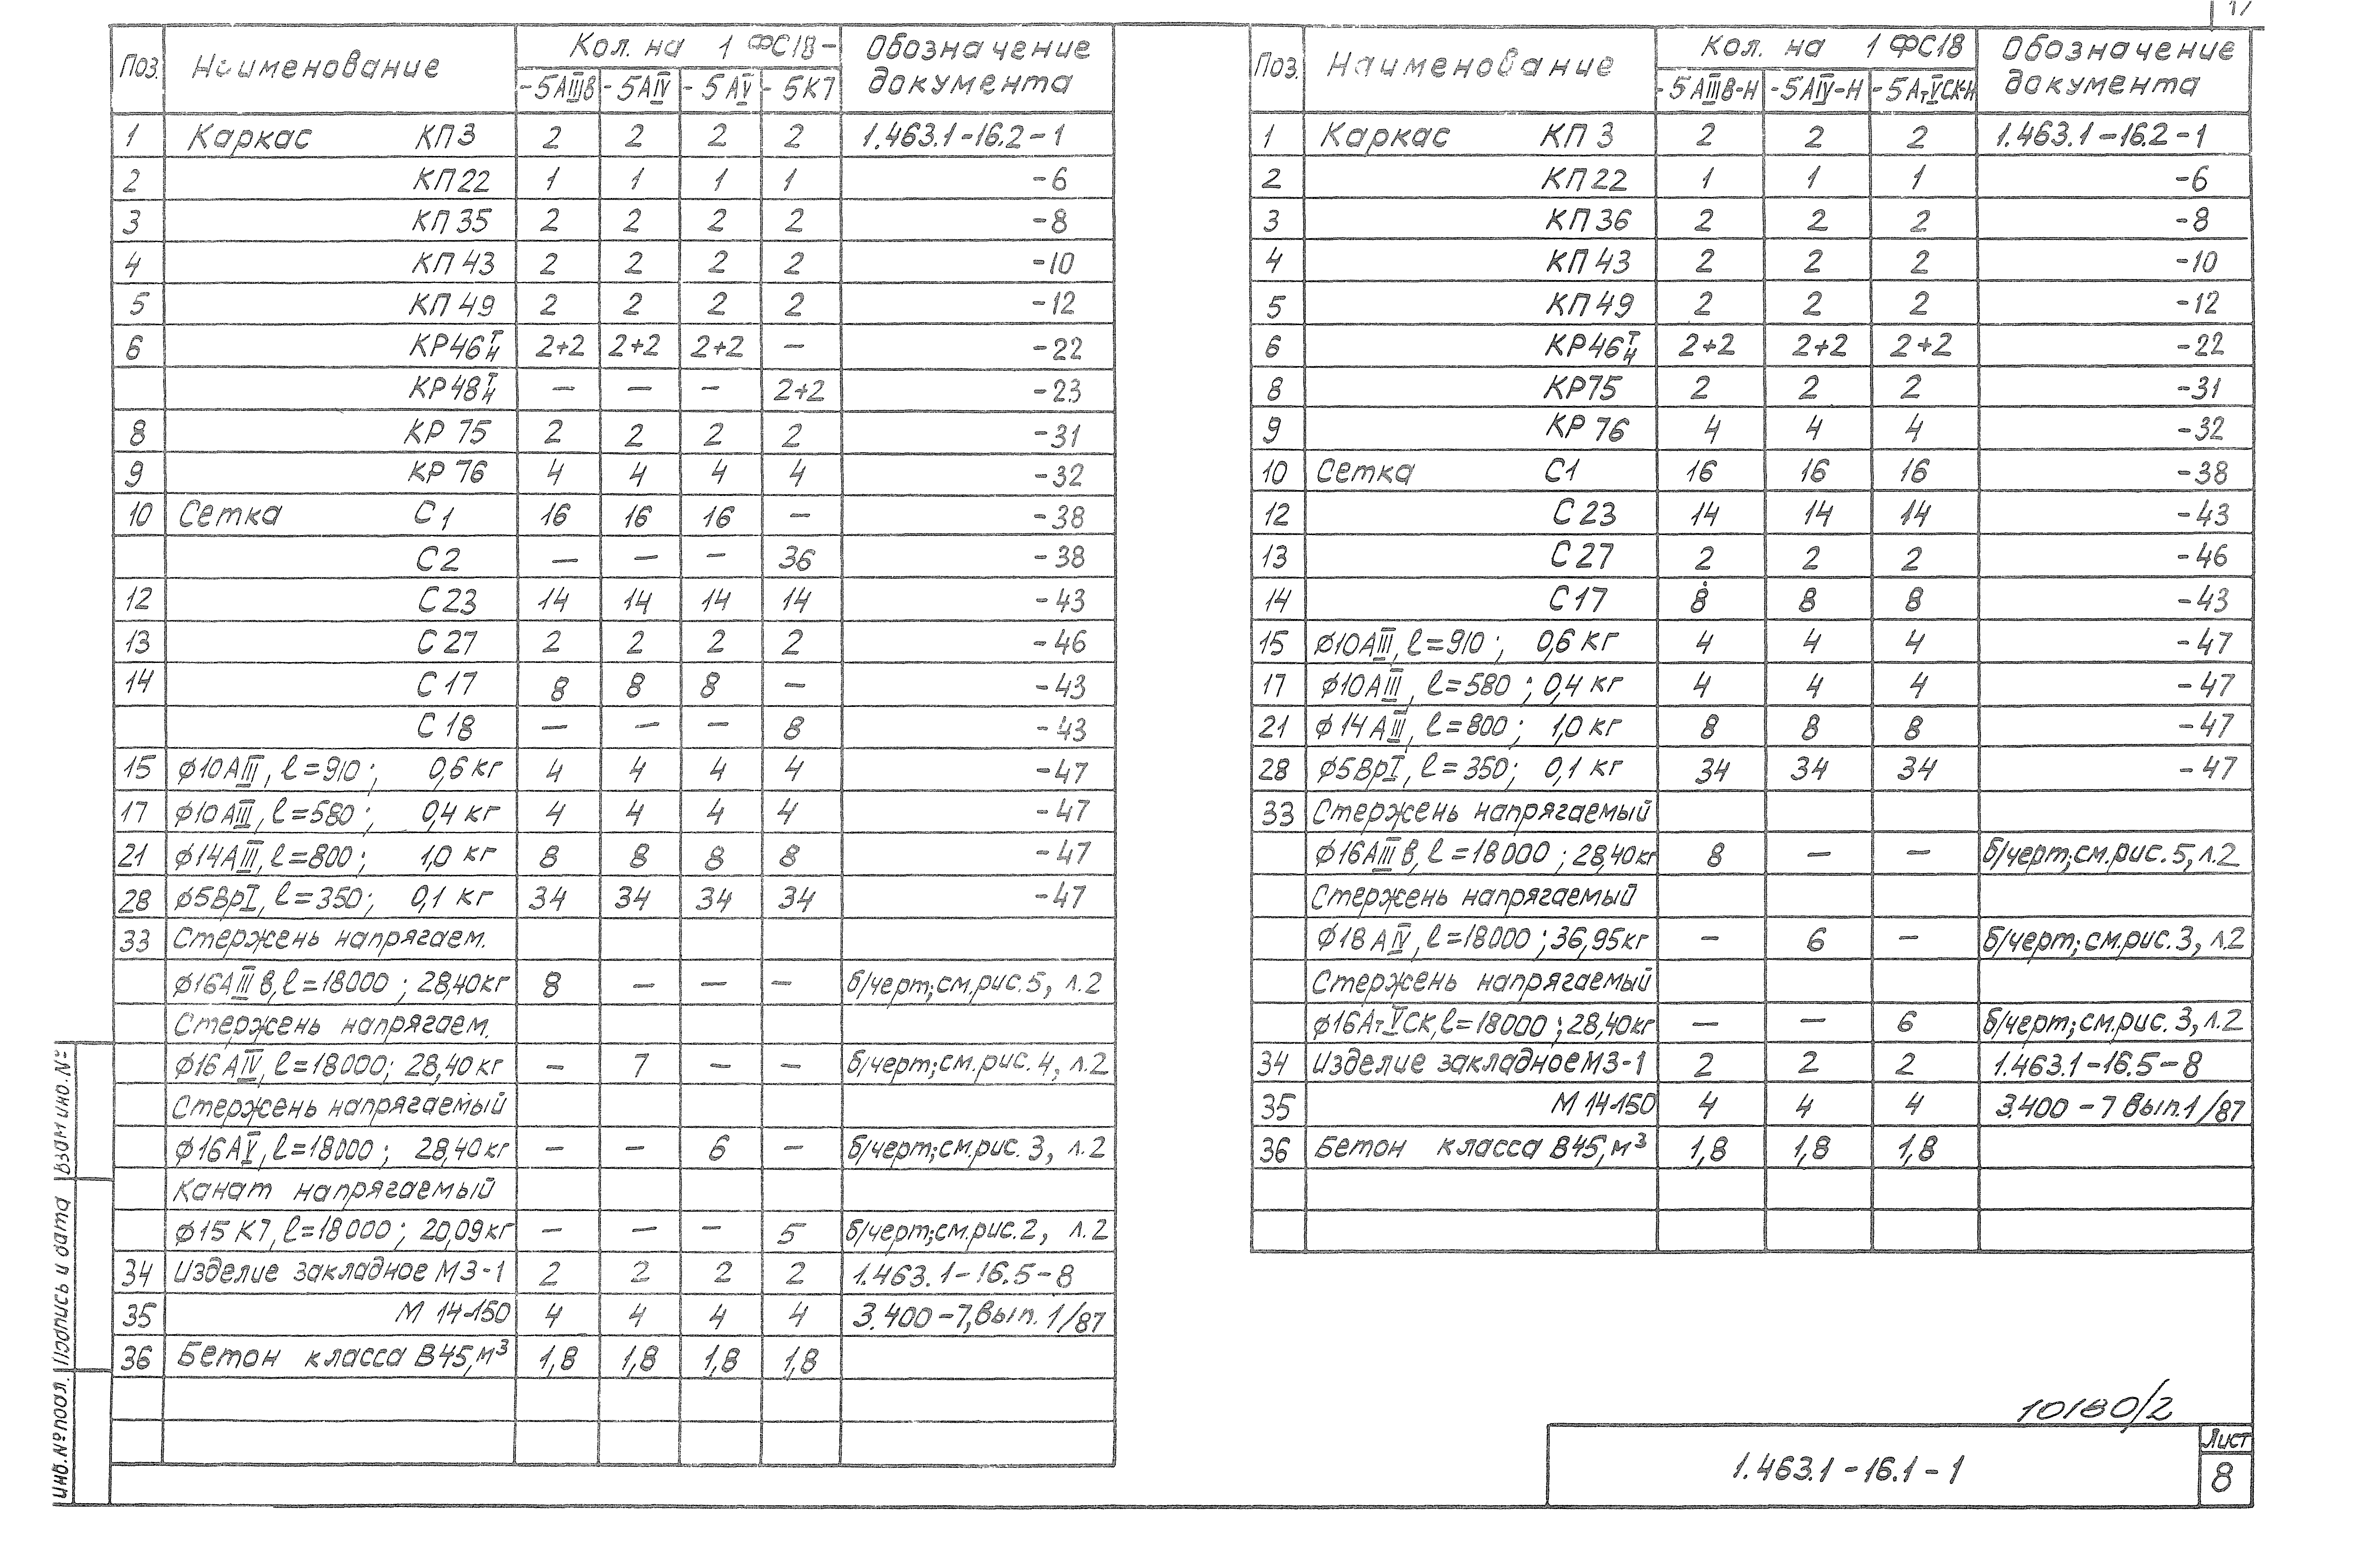 17
Поз. Наименование Кол. на 1 ФС18- Обозначение документа
-5АIIIв -5АIV -5АV -5К7
1 Каркас КП3 2 2 2 2 1.463.1-16.2-1
2 КП22 1 1 1 1 -6
3 КП35 2 2 2 2 -8
4 КП43 2 2 2 2 -10
5 КП49 2 2 2 2 -12
6 КР46Т/Н 2+2 2+2 2+2 — -22
КР48Т/Н — — — 2+2 -23
8 КР75 2 2 2 2 -31
9 КР76 4 4 4 4 -32
10 Сетка С1 16 16 16 — -38
С2 — — — 36 -38
12 С23 14 14 14 14 -43
13 С27 2 2 2 2 -46
14 С17 8 8 8 — -43
С18 — — — 8 -43
15 ϕ10АIII, ℓ=910; 0,6 кг 4 4 4 4 -47
17 ϕ10АIII, ℓ=580; 0,4 кг 4 4 4 4 -47
21 ϕ14АIII, ℓ=800; 1,0 кг 8 8 8 8 -47
28 ϕ5ВрI, ℓ=350; 0,1 кг 34 34 34 34 -47
33 Стержень напрягаем.
ϕ16АIIIв, ℓ=18000; 28,40кг 8 — — — б/черт; см.рис.5, л.2
Стержень напрягаем.
ϕ16АIV, ℓ=18000; 28,40кг — 7 — — б/черт; см.рис.4, л.2
Стержень напрягаемый
ϕ16АV, ℓ=18000; 28,40кг — — 6 — б/черт; см.рис.3, л.2
Канат напрягаемый
ϕ15К7, ℓ=18000; 20,09кг — — — 5 б/черт; см.рис.2, л.2
34 Изделие закладное МЗ-1 2 2 2 2 1.463.1-16.5-8
35 М14-150 4 4 4 4 3.400-7, Вып.1/87
36 Бетон класса В45, м³ 1,8 1,8 1,8 1,8
Поз. Наименование Кол. на 1 ФС18 Обозначение документа
-5АIIIв-Н -5АIV-Н -5АтVСК-Н
1 Каркас КП3 2 2 2 1.463.1-16.2-1
2 КП22 1 1 1 -6
3 КП36 2 2 2 -8
4 КП43 2 2 2 -10
5 КП49 2 2 2 -12
6 КР46Т/Н 2+2 2+2 2+2 -22
8 КР75 2 2 2 -31
9 КР76 4 4 4 -32
10 Сетка С1 16 16 16 -38
12 С23 14 14 14 -43
13 С27 2 2 2 -46
14 С17 8 8 8 -43
15 ϕ10АIII, ℓ=910; 0,6 кг 4 4 4 -47
17 ϕ10АIII, ℓ=580; 0,4 кг 4 4 4 -47
21 ϕ14АIII, ℓ=800; 1,0 кг 8 8 8 -47
28 ϕ5ВрI, ℓ=350; 0,1 кг 34 34 34 -47
33 Стержень напрягаемый
ϕ16АIIIв, ℓ=18000; 28,40кг 8 — — б/черт; см.рис.5, л.2
Стержень напрягаемый
ϕ18АIV, ℓ=18000; 36,95кг — 6 — б/черт; см.рис.3, л.2
Стержень напрягаемый
ϕ16АтVСК, ℓ=18000; 28,40кг — — 6 б/черт; см.рис.3, л.2
34 Изделие закладное МЗ-1 2 2 2 1.463.1-16.5-8
35 М14-150 4 4 4 3.400-7 Вып.1/87
36 Бетон класса В45, м³ 1,8 1,8 1,8
10180/2
1.463.1-16.1-1
Лист
8
Взам инв.№
Подпись и дата
Инв.№ подл.